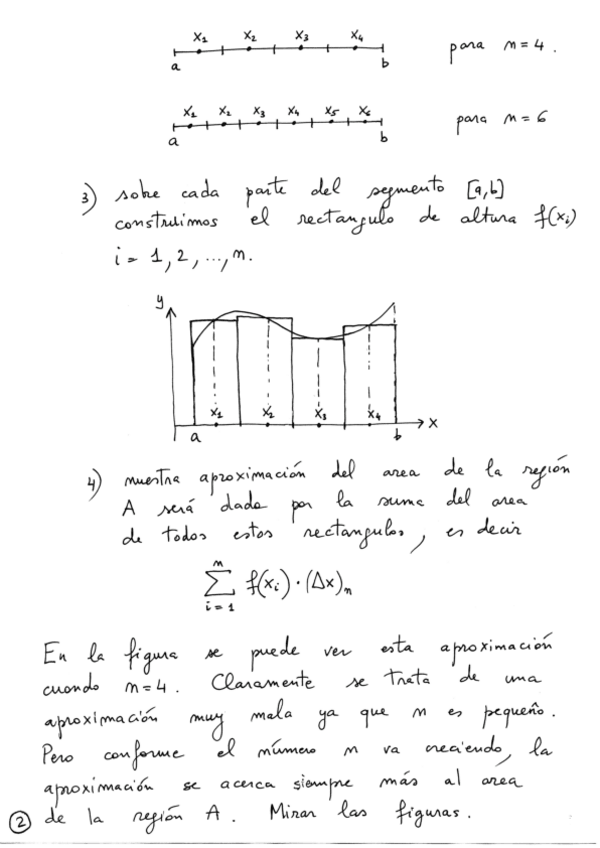 x₁ x₂ x₃ x₄
a b para n = 4.
x₁ x₂ x₃ x₄ x₅ x₆
a b para n = 6
3) sobre cada parte del segmento [a,b]
construimos el rectangulo de altura f(xᵢ)
i = 1, 2, ..., n.
y
x₁ x₂ x₃ x₄ x
a b
4) nuestra aproximación del area de la región
A será dada por la suma del area
de todos estos rectangulos, es decir
∑ⁿᵢ₌₁ f(xᵢ)·(Δx)ₙ
En la figura se puede ver esta aproximación
cuando n=4. Claramente se trata de una
aproximación muy mala ya que n es pequeño.
Pero conforme el número n va creciendo, la
aproximación se acerca siempre más al area
② de la región A. Mirar las figuras.